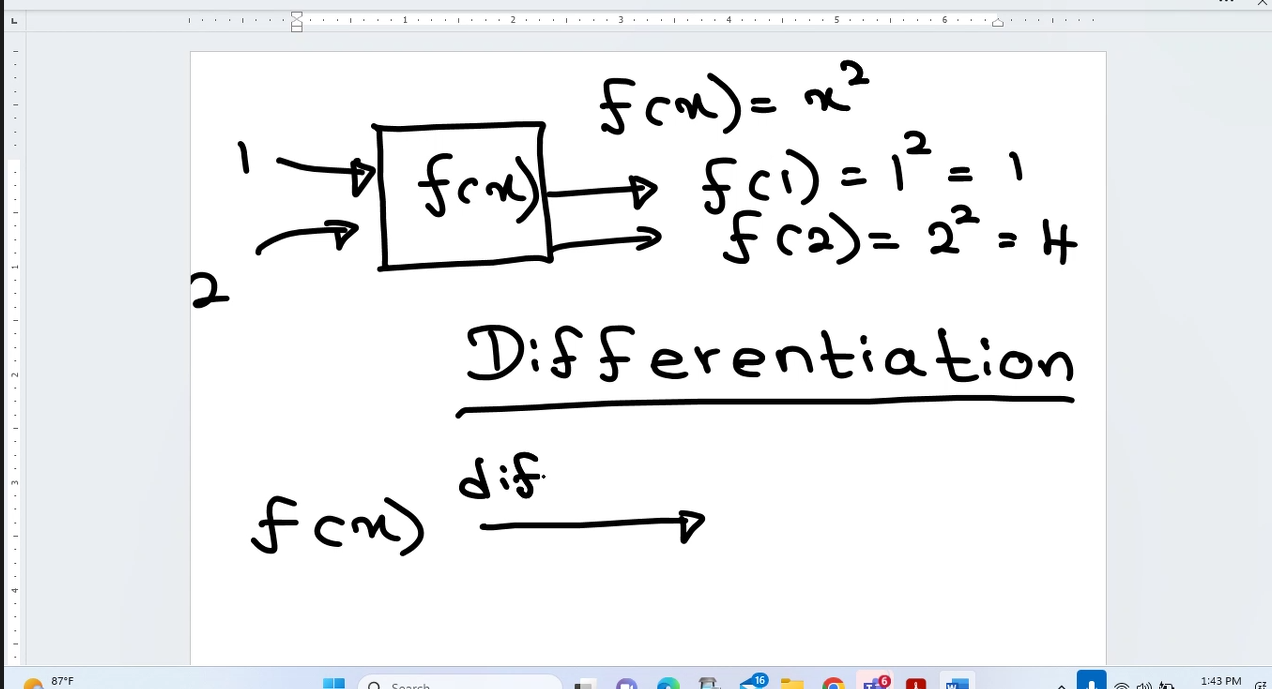 1 2 3 4 5 6
f(x) = x²
1
f(x)
f(1) = 1² = 1
f(2) = 2² = 4
2
Differentiation
dif
f(x)
1
2
3
4
87°F
Search
16
6
1:43 PM